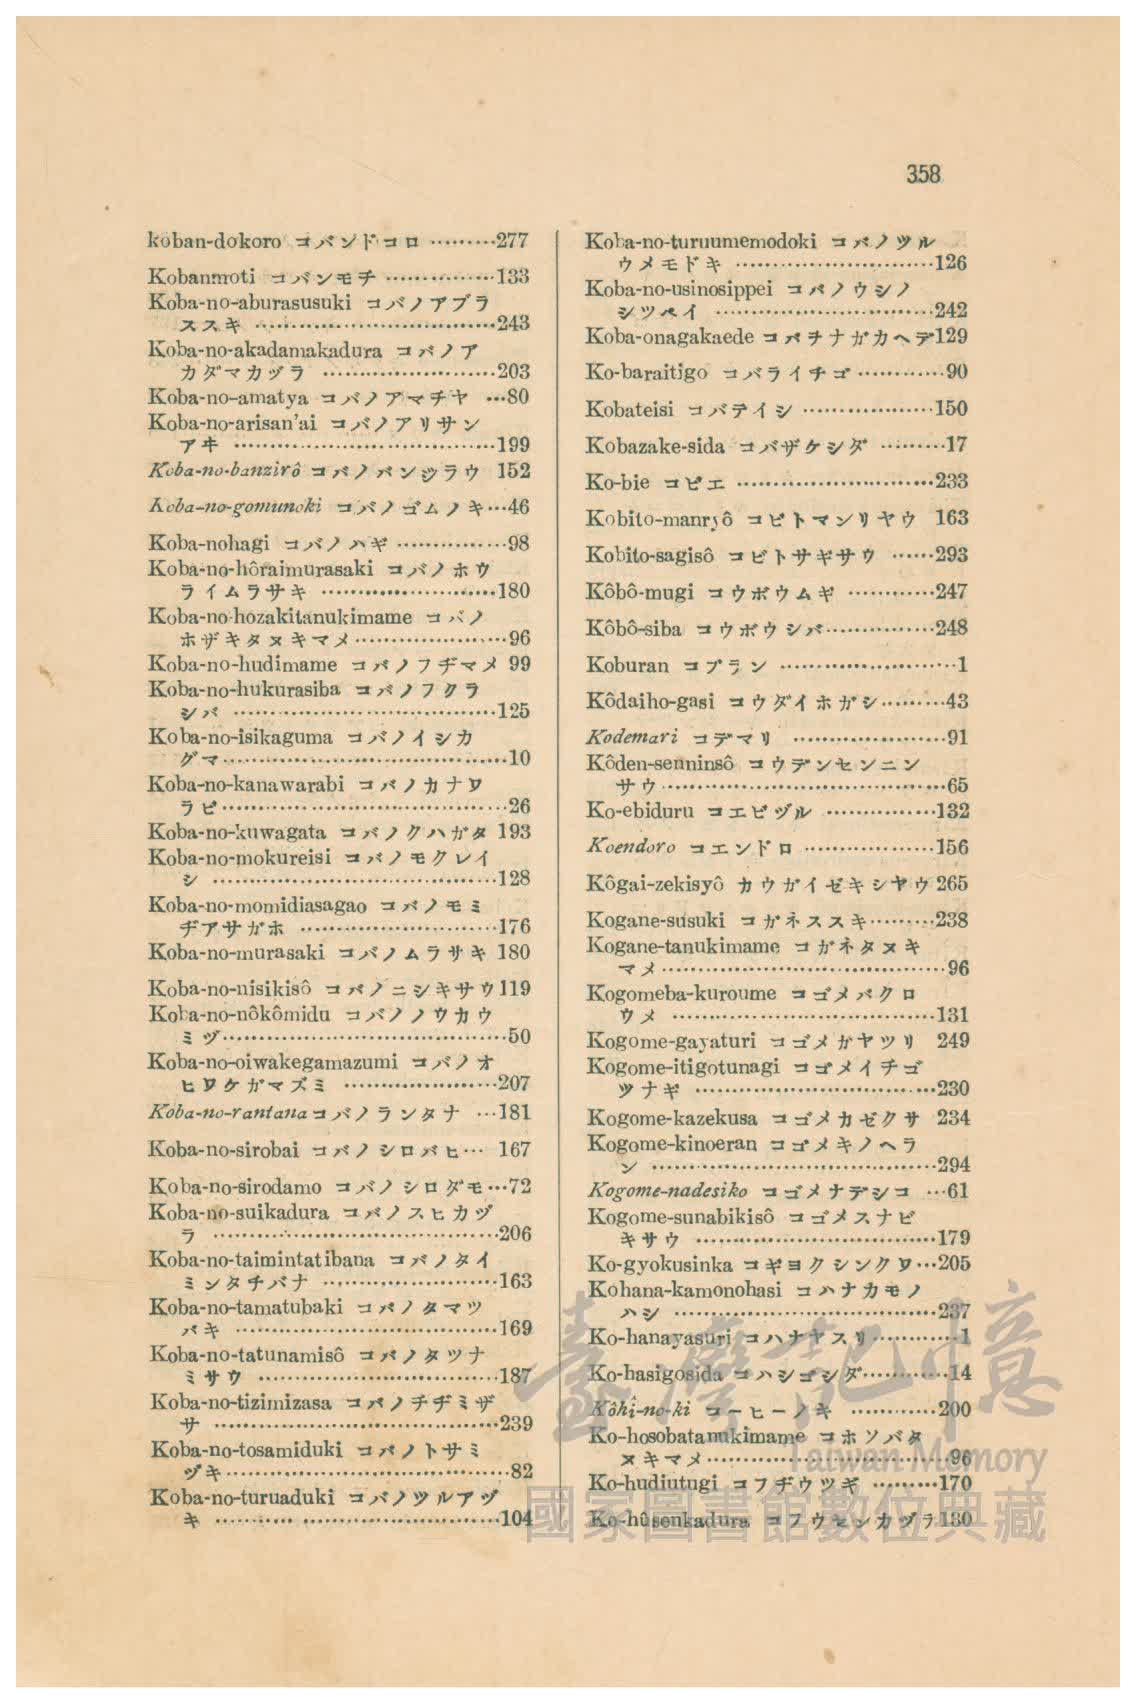 358
koban-dokoro コバンドコロ ………277
Kobanmoti コバンモチ ……………133
Koba-no-aburasusuki コバノアブラ
ススキ ……………………………243
Koba-no-akadamakadura コバノア
カダマカヅラ ……………………203
Koba-no-amatya コバノアマチヤ …80
Koba-no-arisan'ai コバノアリサン
アヰ ………………………………199
Koba-no-banzirô コバノバンジラウ 152
Koba-no-gomunoki コバノゴムノキ…46
Koba-nohagi コバノハギ ……………98
Koba-no-hôraimurasaki コバノホウ
ライムラサキ ……………………180
Koba-no-hozakitanukimame コバノ
ホザキタヌキマメ…………………96
Koba-no-hudimame コバノフヂマメ 99
Koba-no-hukurasiba コバノフクラ
シバ ………………………………125
Koba-no-isikaguma コバノイシカ
グマ…………………………………10
Koba-no-kanawarabi コバノカナワ
ラビ…………………………………26
Koba-no-kuwagata コバノクハガタ 193
Koba-no-mokureisi コバノモクレイ
シ …………………………………128
Koba-no-momidiasagao コバノモミ
ヂアサガホ ………………………176
Koba-no-murasaki コバノムラサキ 180
Koba-no-nisikisô コバノニシキサウ119
Koba-no-nôkômidu コバノノウカウ
ミヅ…………………………………50
Koba-no-oiwakegamazumi コバノオ
ヒワケガマズミ …………………207
Koba-no-rantana コバノランタナ …181
Koba-no-sirobai コバノシロバヒ… 167
Koba-no-sirodamo コバノシロダモ…72
Koba-no-suikadura コバノスヒカヅ
ラ …………………………………206
Koba-no-taimintatibana コバノタイ
ミンタチバナ ……………………163
Koba-no-tamatubaki コバノタマツ
バキ ………………………………169
Koba-no-tatunamisô コバノタツナ
ミサウ ……………………………187
Koba-no-tizimizasa コバノチヂミザ
サ …………………………………239
Koba-no-tosamiduki コバノトサミ
ヅキ…………………………………82
Koba-no-turuaduki コバノツルアヅ
キ …………………………………104
Koba-no-turuumemodoki コバノツル
ウメモドキ ………………………126
Koba-no-usinosippei コバノウシノ
シツペイ …………………………242
Koba-onagakaede コバヲナガカヘデ129
Ko-baraitigo コバライチゴ …………90
Kobateisi コバテイシ ………………150
Kobazake-sida コバザケシダ ………17
Ko-bie コビエ ………………………233
Kobito-manryô コビトマンリヤウ 163
Kobito-sagisô コビトサギサウ ……293
Kôbô-mugi コウボウムギ …………247
Kôbô-siba コウボウシバ……………248
Koburan コブラン ……………………1
Kôdaiho-gasi コウダイホガシ………43
Kodemari コデマリ …………………91
Kôden-senninsô コウデンセンニン
サウ…………………………………65
Ko-ebiduru コエビヅル ……………132
Koendoro コエンドロ ………………156
Kôgai-zekisyô カウガイゼキシヤウ 265
Kogane-susuki コガネススキ………238
Kogane-tanukimame コガネタヌキ
マメ…………………………………96
Kogomeba-kuroume コゴメバクロ
ウメ ………………………………131
Kogome-gayaturi コゴメガヤツリ 249
Kogome-itigotunagi コゴメイチゴ
ツナギ ……………………………230
Kogome-kazekusa コゴメカゼクサ 234
Kogome-kinoeran コゴメキノヘラ
ン …………………………………294
Kogome-nadesiko コゴメナデシコ …61
Kogome-sunabikisô コゴメスナビ
キサウ ……………………………179
Ko-gyokusinka コギヨクシンクワ…205
Kohana-kamonohasi コハナカモノ
ハシ ………………………………237
Ko-hanayasuri コハナヤスリ…………1
Ko-hasigosida コハシゴシダ…………14
Kôhî-no-ki コーヒーノキ …………200
Ko-hosobatanukimame コホソバタ
ヌキマメ……………………………96
Ko-hudiutugi コフヂウツギ ………170
Ko-hûsenkadura コフウセンカヅラ130
臺灣記憶
Taiwan Memory
國家圖書館數位典藏